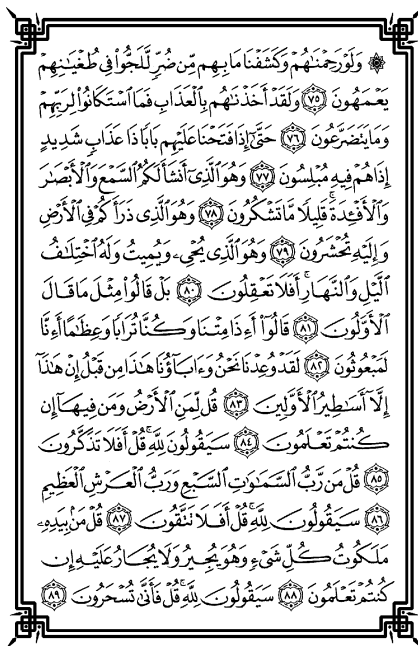 ۞ وَلَوْ رَحِمْنَـٰهُمْ وَكَشَفْنَا مَا بِهِم مِّن ضُرٍّ لَّلَجُّوا۟ فِى طُغْيَـٰنِهِمْ
يَعْمَهُونَ ٧٥ وَلَقَدْ أَخَذْنَـٰهُم بِٱلْعَذَابِ فَمَا ٱسْتَكَانُوا۟ لِرَبِّهِمْ
وَمَا يَتَضَرَّعُونَ ٧٦ حَتَّىٰٓ إِذَا فَتَحْنَا عَلَيْهِم بَابًا ذَا عَذَابٍ شَدِيدٍ
إِذَا هُمْ فِيهِ مُبْلِسُونَ ٧٧ وَهُوَ ٱلَّذِىٓ أَنشَأَ لَكُمُ ٱلسَّمْعَ وَٱلْأَبْصَـٰرَ
وَٱلْأَفْـِٔدَةَ ۚ قَلِيلًا مَّا تَشْكُرُونَ ٧٨ وَهُوَ ٱلَّذِى ذَرَأَكُمْ فِى ٱلْأَرْضِ
وَإِلَيْهِ تُحْشَرُونَ ٧٩ وَهُوَ ٱلَّذِى يُحْىِۦ وَيُمِيتُ وَلَهُ ٱخْتِلَـٰفُ
ٱلَّيْلِ وَٱلنَّهَارِ ۚ أَفَلَا تَعْقِلُونَ ٨٠ بَلْ قَالُوا۟ مِثْلَ مَا قَالَ
ٱلْأَوَّلُونَ ٨١ قَالُوٓا۟ أَءِذَا مِتْنَا وَكُنَّا تُرَابًا وَعِظَـٰمًا أَءِنَّا
لَمَبْعُوثُونَ ٨٢ لَقَدْ وُعِدْنَا نَحْنُ وَءَابَآؤُنَا هَـٰذَا مِن قَبْلُ إِنْ هَـٰذَآ
إِلَّآ أَسَـٰطِيرُ ٱلْأَوَّلِينَ ٨٣ قُل لِّمَنِ ٱلْأَرْضُ وَمَن فِيهَآ إِن
كُنتُمْ تَعْلَمُونَ ٨٤ سَيَقُولُونَ لِلَّهِ ۚ قُلْ أَفَلَا تَذَكَّرُونَ
٨٥ قُلْ مَن رَّبُّ ٱلسَّمَـٰوَٰتِ ٱلسَّبْعِ وَرَبُّ ٱلْعَرْشِ ٱلْعَظِيمِ
٨٦ سَيَقُولُونَ لِلَّهِ ۚ قُلْ أَفَلَا تَتَّقُونَ ٨٧ قُلْ مَنۢ بِيَدِهِۦ
مَلَكُوتُ كُلِّ شَىْءٍ وَهُوَ يُجِيرُ وَلَا يُجَارُ عَلَيْهِ إِن
كُنتُمْ تَعْلَمُونَ ٨٨ سَيَقُولُونَ لِلَّهِ ۚ قُلْ فَأَنَّىٰ تُسْحَرُونَ ٨٩